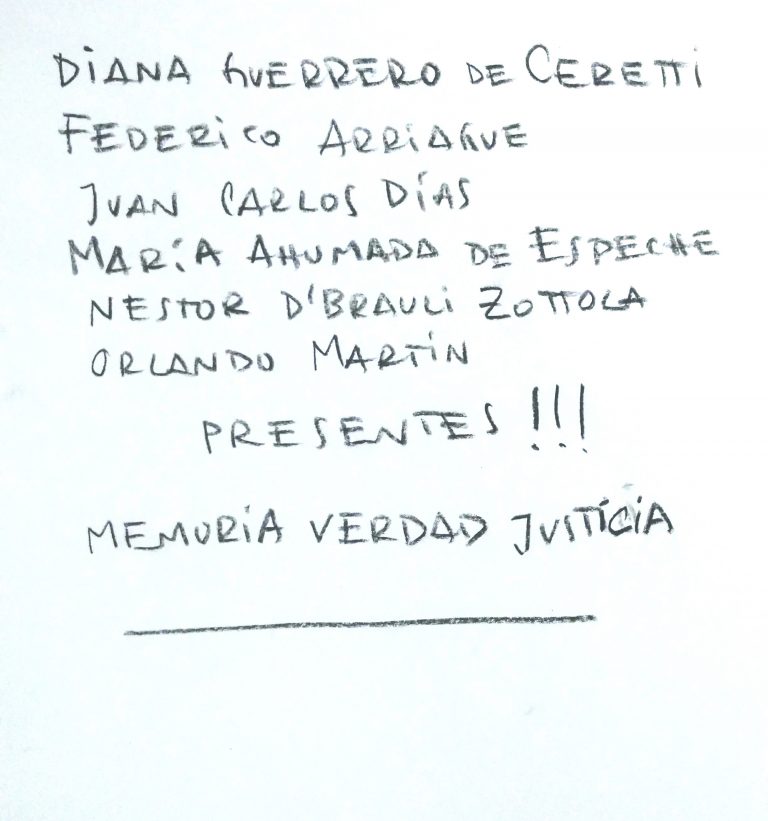 DIANA GUERRERO DE CERETTI
FEDERICO ARRIAGUE
JUAN CARLOS DÍAS
MARÍA AHUMADA DE ESPECHE
NESTOR D'BRAULI ZOTTOLA
ORLANDO MARTÍN
PRESENTES !!!
MEMORIA VERDAD JUSTICIA